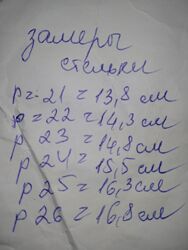 замеры
стельки
р=21=13,8 см
р=22=14,3 см
р 23 =14,8 см
р 24 = 15,5 см
р 25 = 16,3 см
р 26 = 16,8 см